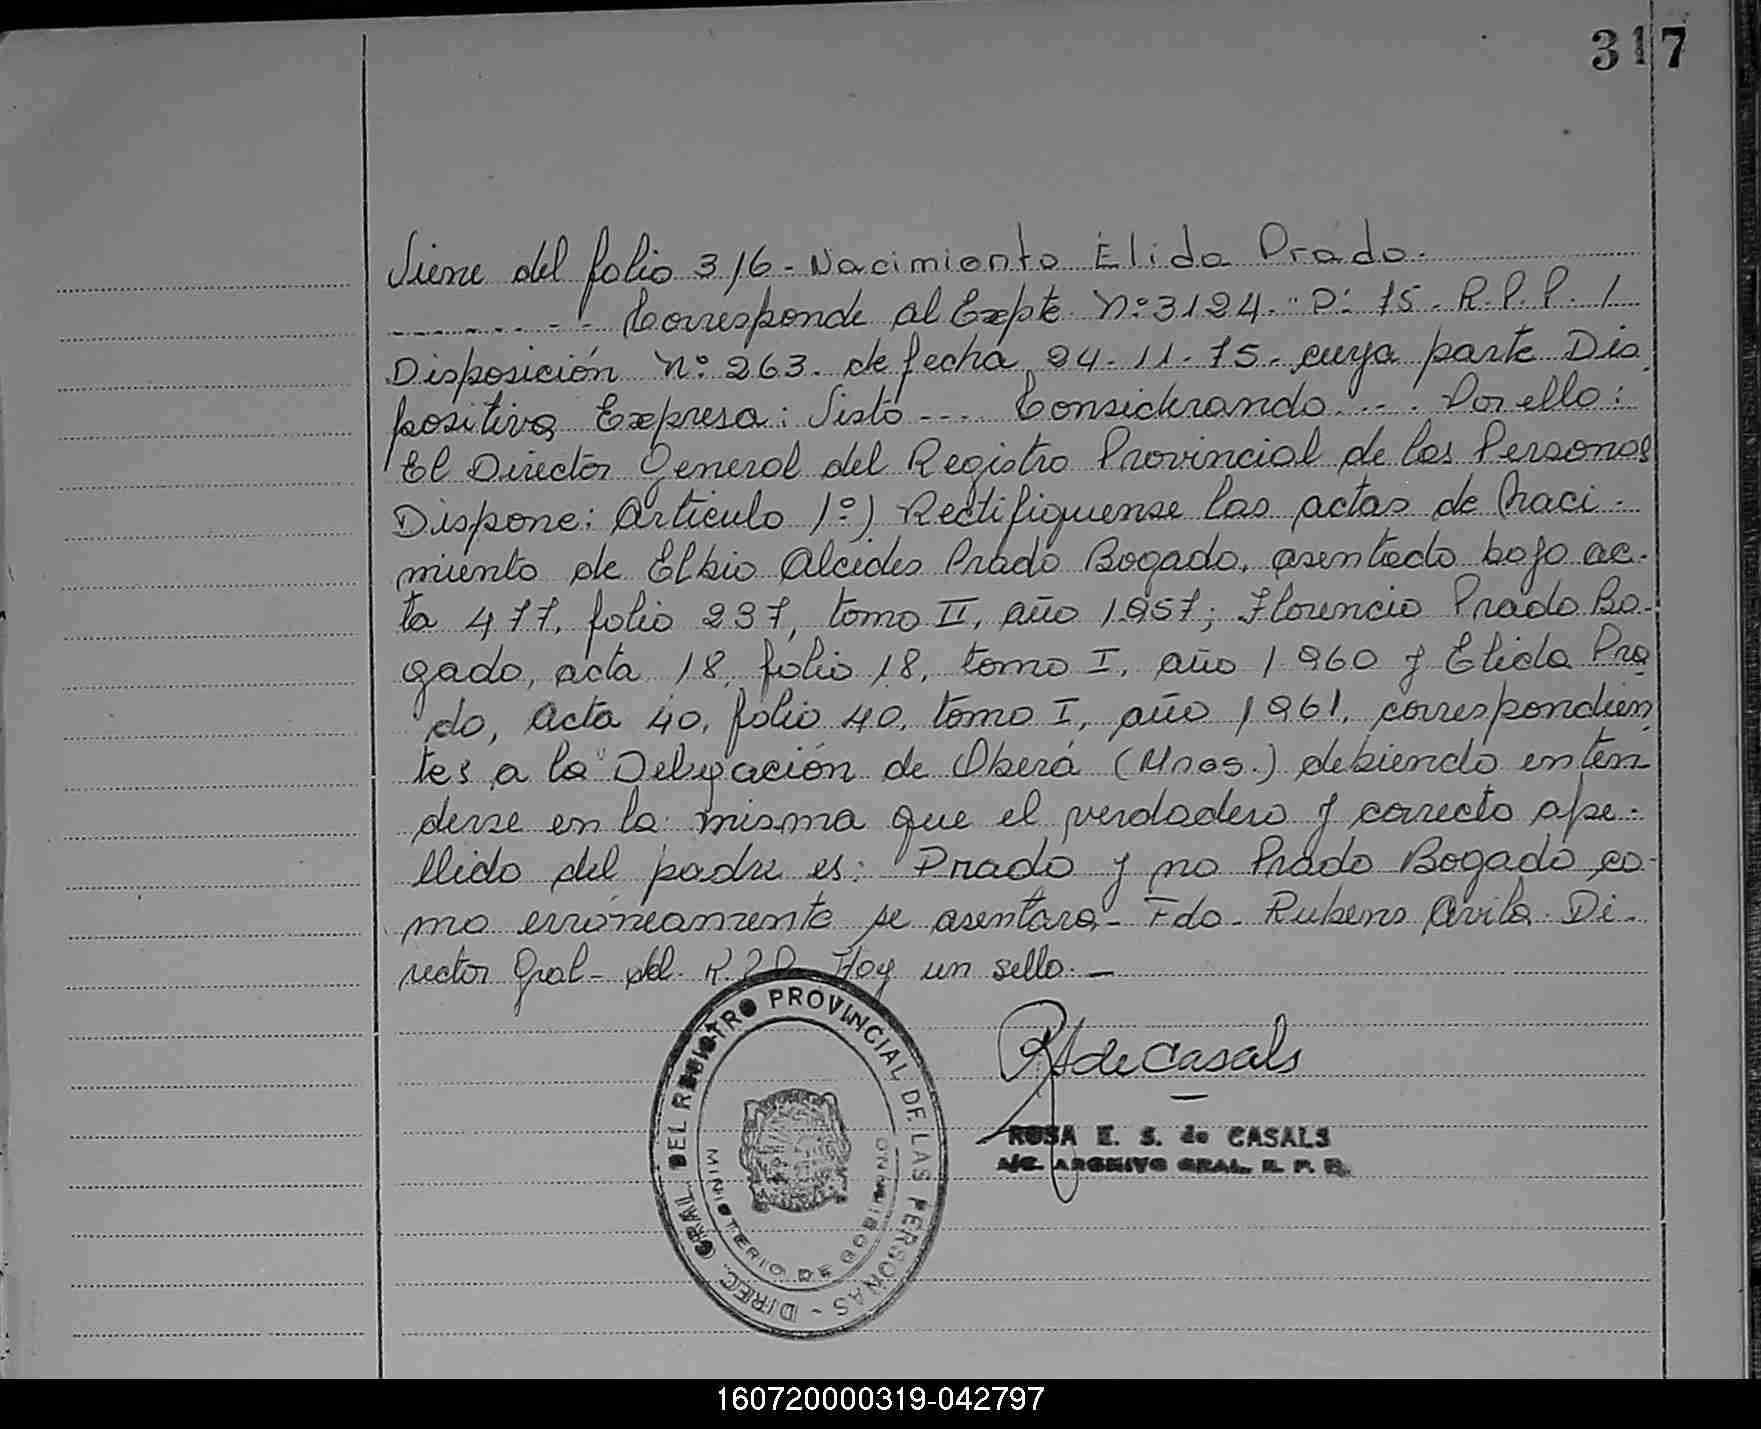 317
Viene del folio 316 - Nacimiento Elida Prado.
- - - - - - - Corresponde al Expte Nº 3124 - "P" 75 - R.P.P. /
Disposición Nº 263 - de fecha 24-11-75 - cuya parte Dis
positiva Expresa: Visto --- Considerando --- Por ello:
El Director General del Registro Provincial de las Personas
Dispone: Artículo 1º) Rectifiquense las actas de naci-
miento de Elbio Alcides Prado Bogado, asentado bajo ac-
ta 477, folio 237, tomo II, año 1957; Florencio Prado Bo-
gado, acta 18, folio 18, tomo I, año 1960 y Elida Pra
do, acta 40, folio 40, tomo I, año 1961, correspondien
tes a la Delegación de Oberá (Mnes.) debiendo enten
derse en la misma que el verdadero y correcto ape-
llido del padre es: Prado y no Prado Bogado co-
mo erróneamente se asentara - Fdo - Rubens Avila - Di-
rector Gral - del R.P.P. Hay un sello. -
DIREC. GRAL. DEL REGISTRO PROVINCIAL DE LAS PERSONAS -
MINISTERIO DE GOBIERNO
de Casals
ROSA E. S. de CASALS
A/C. ARCHIVO GRAL. R. P. P.
160720000319-042797